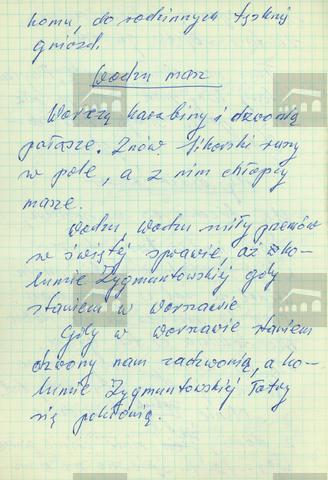 homu, do rodzinnych tęsknij
gniazd.
Wodzu nasz
Warczą karabiny i dzwonią
pałasze. Znów Sikorski rusy
w pole, a z nim chłopcy
nasze.
Wodzu, Wodzu miły przewódź
w świętej sprawie, aż
lumnie Zygmuntowskiej gdy
staniem w Warszawie
Gdy w Warszawie staniem
dzwony nam zadzwonią, a ko-
lumnie Zygmuntowskiej Tatry
się pokłonią.